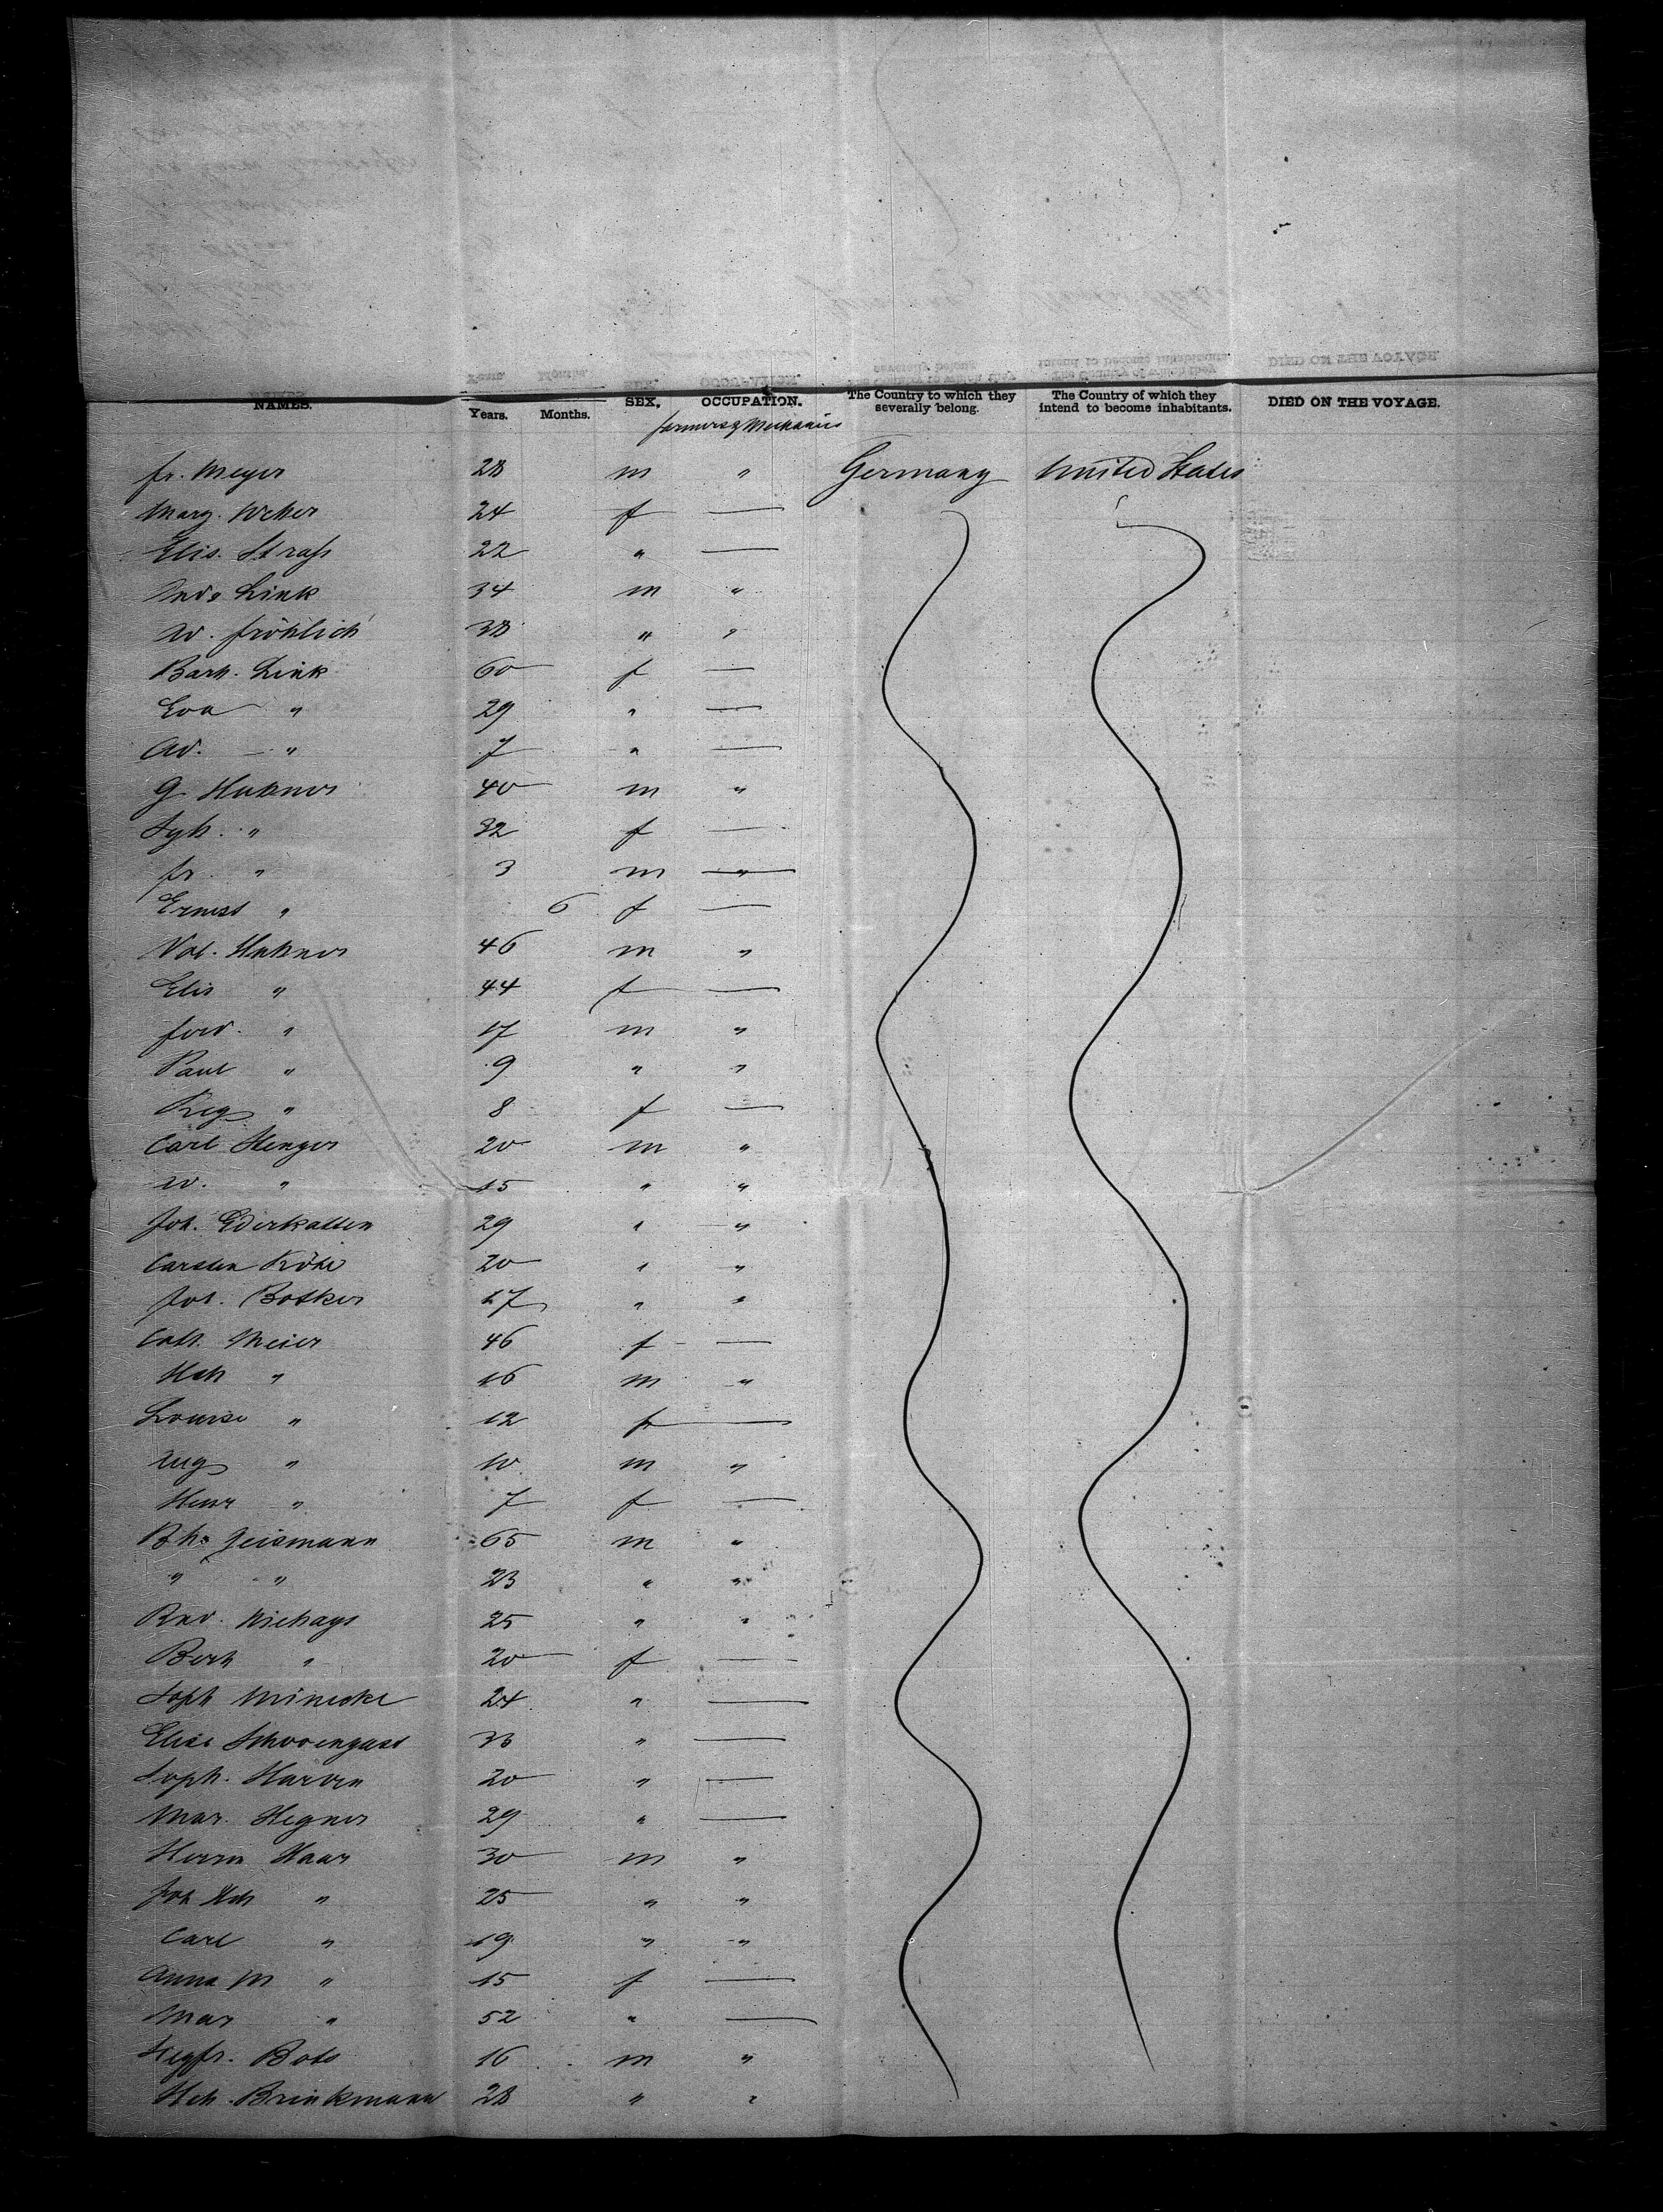 NAMES. Years. Months. SEX. OCCUPATION. The Country to which they severally belong. The Country of which they intend to become inhabitants. DIED ON THE VOYAGE.
farmers & Mechanics
fr. Meyer 28 m " Germany United States
Marg. 24 f —
Elis. Strafs 22 " —
Link 34 m "
W. fröhlich 38 " "
Barb. Link 60 f —
Eva " 29 " —
Ad. " 7 " —
G Hubner 40 m "
" 32 f —
fr. " 3 m "
Ernest " 6 f —
Val. Hubner 46 m "
Elis " 44 f —
ferd. " 17 m "
Paul " 9 " "
Reg " 8 f —
Carl Henger 20 m "
W. " 15 " "
Joh. Ederkatten 29 " "
Carsten 20 " "
Joh. Botker 17 " "
Cath. Meier 46 f —
Hch " 16 m "
Louise " 12 f —
Aug " 10 m "
Henr " 7 f —
Bh. Geismann 65 m "
" " 23 " "
25 " "
Berh " 20 f —
Soph Minecke 24 " —
Elise 36 " —
Soph. Harven 20 " —
Mar. Hegner 29 " —
Herm Haar 30 m "
Joh Hch " 25 " "
Carl " 19 " "
Anna M " 15 f —
Mar " 52 " —
Siegfr. 16 m "
Hch. Brinkmann 28 " "